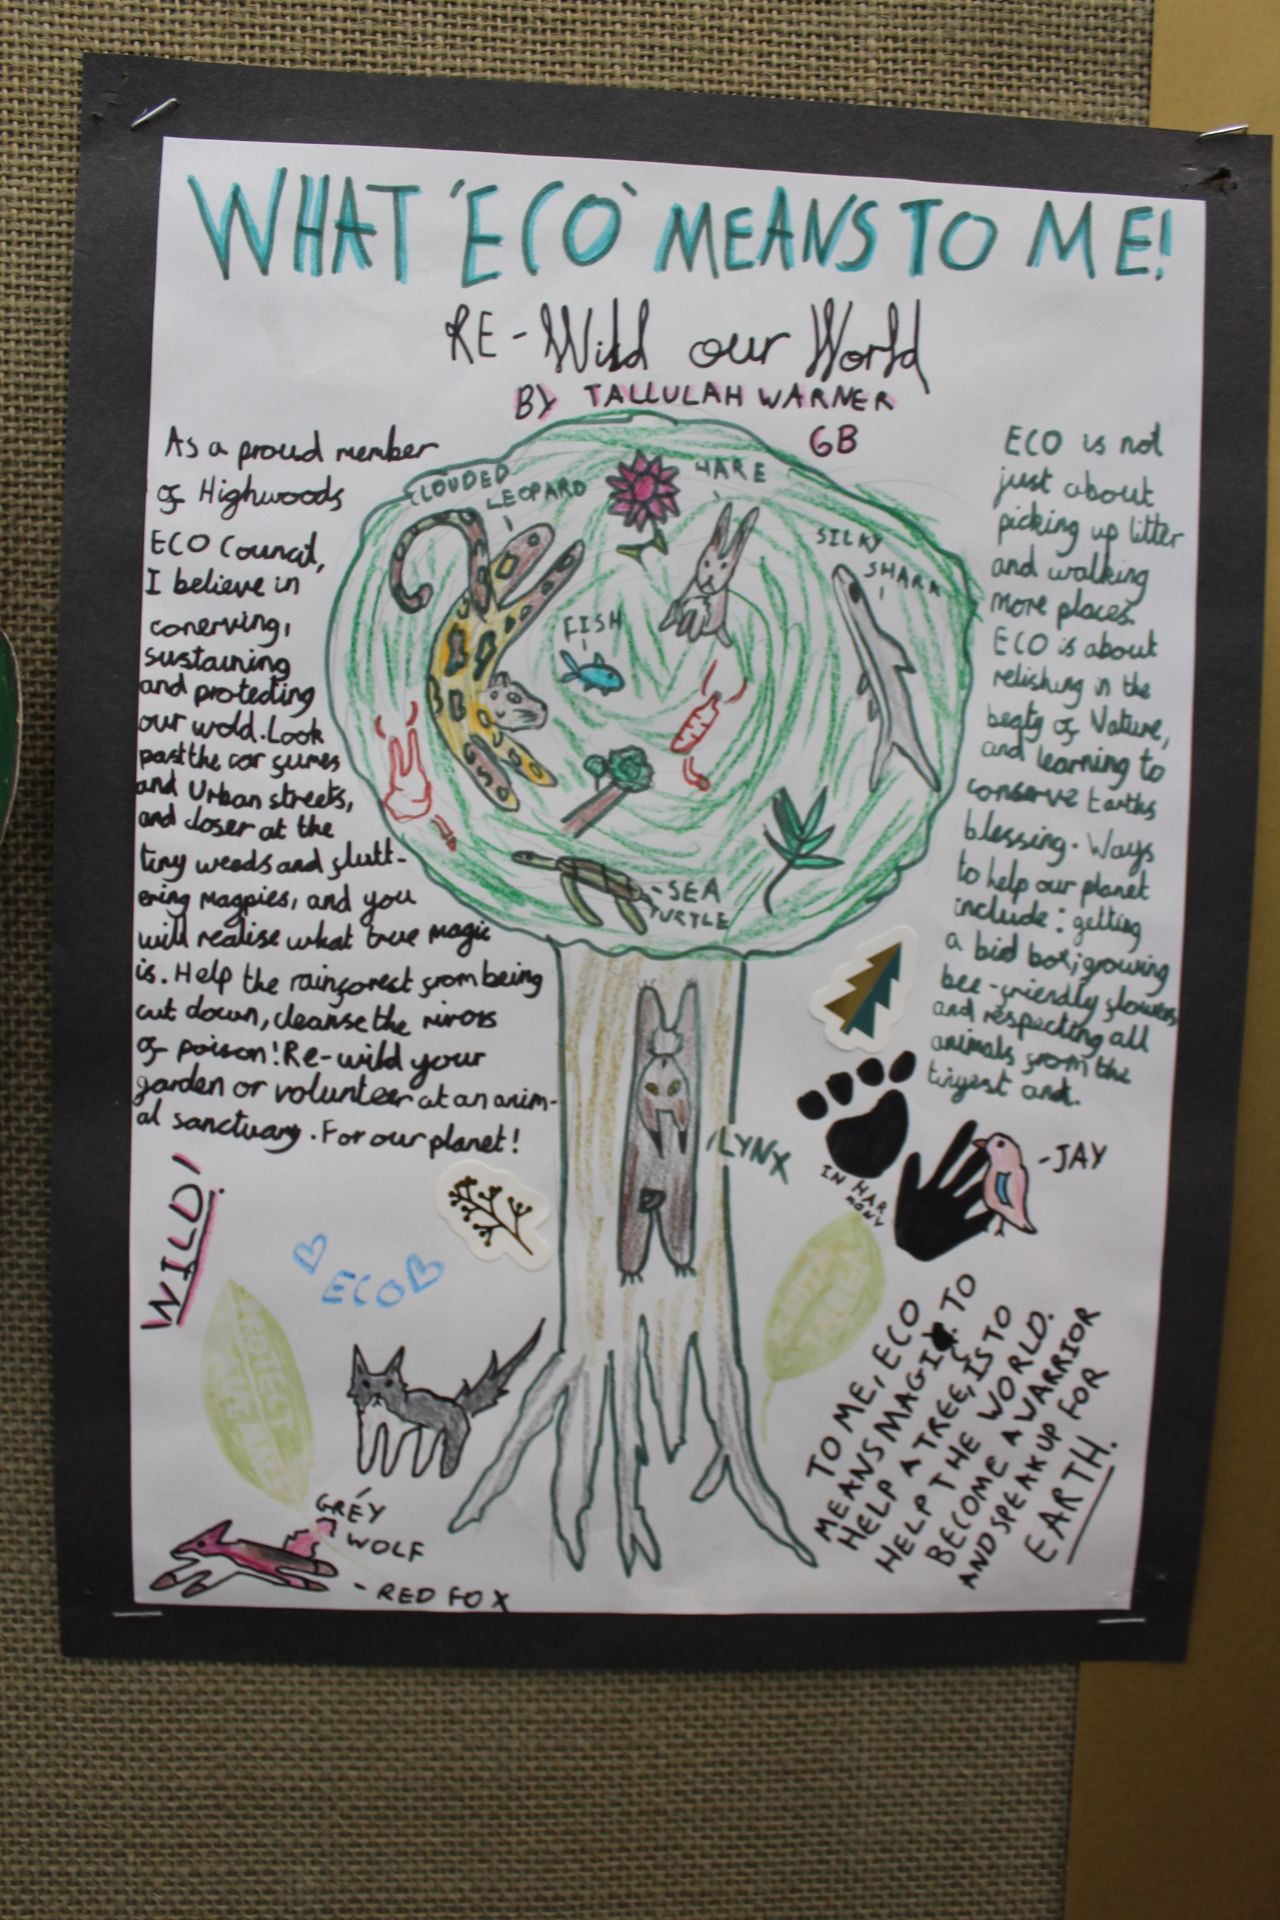 WHAT 'ECO' MEANS TO ME!
RE-Wild our World
BY TALLULAH WARNER
6B
As a proud member
of Highwoods
ECO Council,
I believe in
conerving,
sustaining
and protecting
our wold. Look
past the car fumes
and Urban streets,
and closer at the
tiny weeds and flutt-
ering magpies, and you
will realise what true magic
is. Help the rainforest from being
cut down, cleanse the rivers
of poison! Re-wild your
garden or volunteer at an anim-
al sanctuary. For our planet!
CLOUDED
LEOPARD
HARE
SILKY
SHARK
FISH
-SEA
TURTLE
LYNX
ECO is not
just about
picking up litter
and walking
more places.
ECO is about
relishing in the
beaty of Nature,
and learning to
conserve Earths
blessing. Ways
to help our planet
include: getting
a bird box; growing
bee-friendly flowers
and respecting all
animals from the
tinyest and.
IN HAR
MONY
-JAY
WILD!
ECO
PROTECT
GREY
WOLF
- RED FOX
TO ME, ECO
MEANS MAGIC. TO
HELP A TREE, IS TO
HELP THE WORLD.
BECOME A WARRIOR
AND SPEAK UP FOR
EARTH.